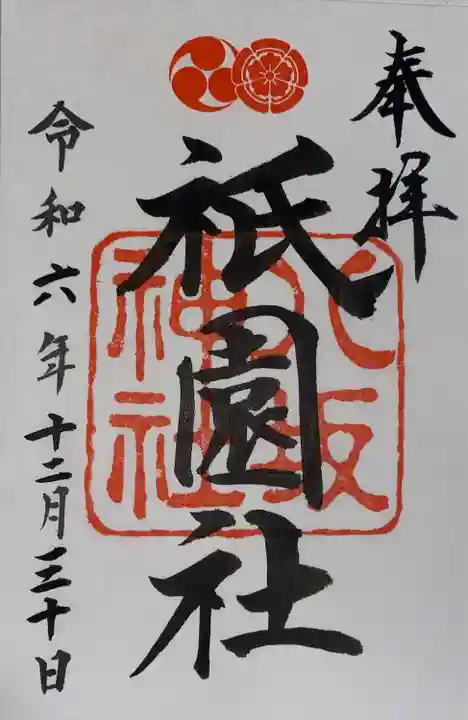 奉拝
祇園社
八坂
神社
令和六年十二月三十日